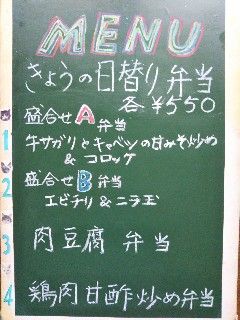 MENU
きょうの日替り弁当
各 ¥550
盛合せ A 弁当
1 牛サガリとキャベツの甘みそ炒め
& コロッケ
盛合せ B 弁当
2 エビチリ & ニラ玉
3 肉豆腐 弁当
4 鶏肉甘酢炒め弁当